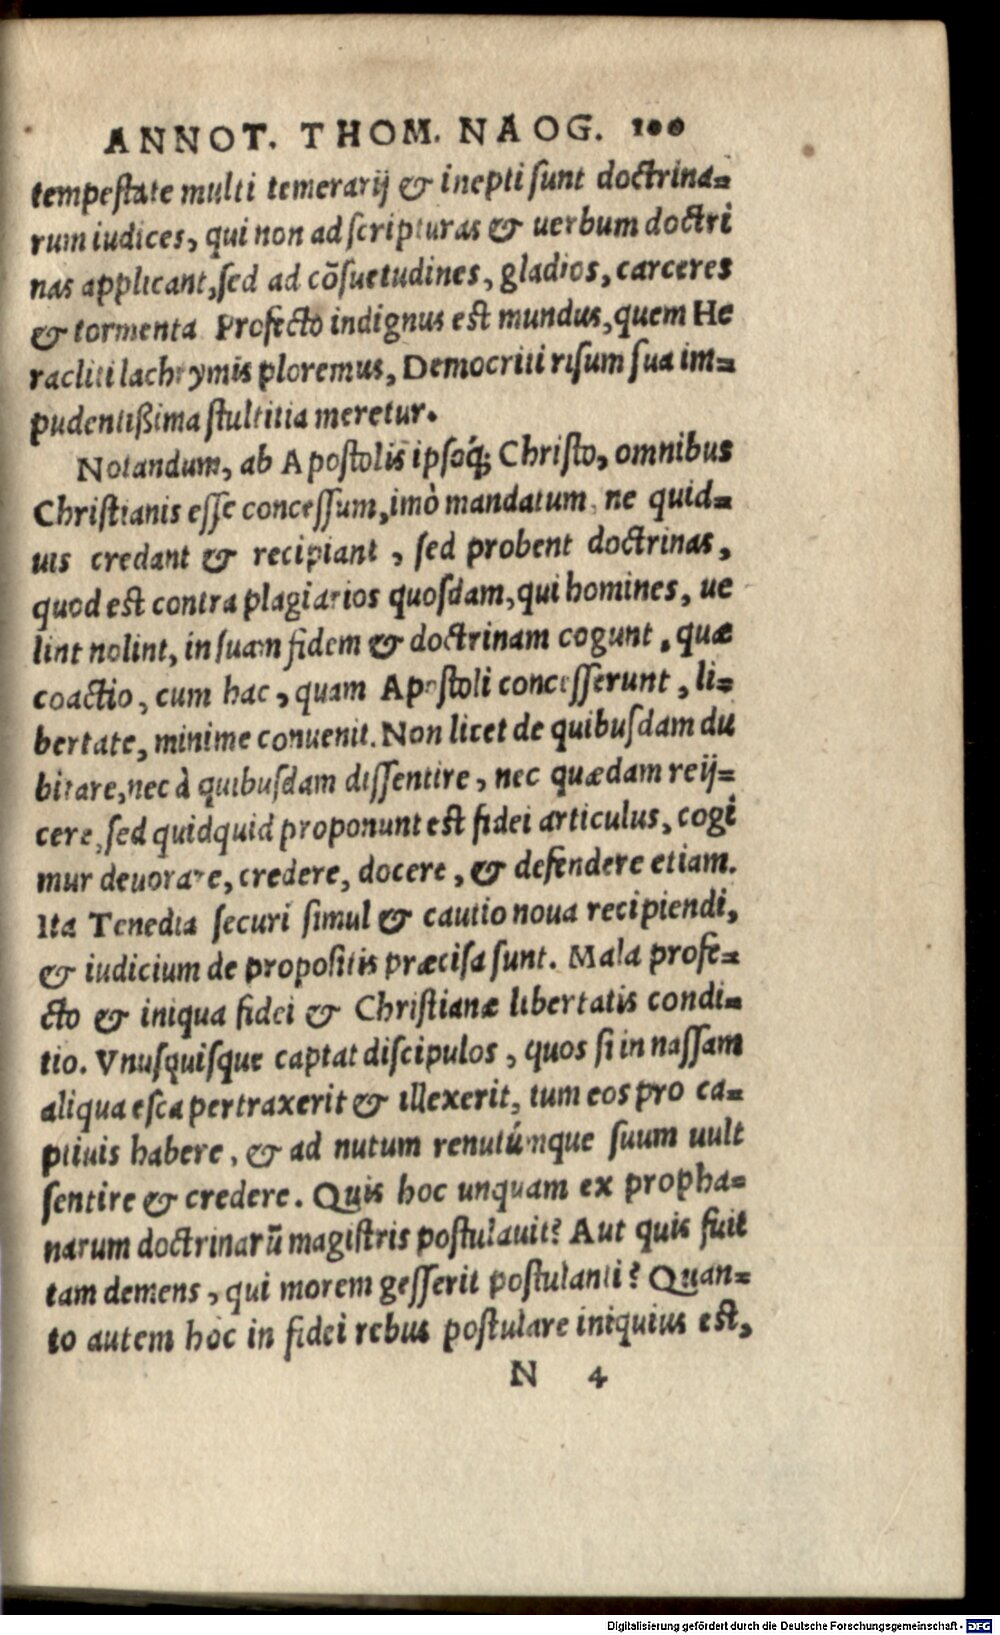 ANNOT. THOM. NAOG. 100
tempeſtate multi temerarij & inepti ſunt doctrina=
rum iudices, qui non ad ſcripturas & uerbum doctri
nas applicant, ſed ad cõſuetudines, gladios, carceres
& tormenta Profecto indignus est mundus, quem He
racliti lachrymis ploremus, Democriti riſum ſua im=
pudentißima ſtultitia meretur.
Notandum, ab Apoſtolis ipſoq́; Chriſto, omnibus
Chriſtianis eſſe conceſſum, imò mandatum, ne quid=
uis credant & recipiant, ſed probent doctrinas,
quod est contra plagiarios quoſdam, qui homines, ue
lint nolint, in ſuam fidem & doctrinam cogunt, quæ
coactio, cum hac, quam Apoſtoli conceſſerunt, li=
bertate, minime conuenit. Non licet de quibuſdam du
bitare, nec à quibuſdam diſſentire, nec quædam reij=
cere, ſed quidquid proponunt est fidei articulus, cogi
mur deuorare, credere, docere, & defendere etiam.
Ita Tenedia ſecuri ſimul & cautio noua recipiendi,
& iudicium de propoſitis præciſa ſunt. Mala profe=
cto & iniqua fidei & Chriſtianæ libertatis condi=
tio. Vnuſquiſque captat diſcipulos, quos ſi in naſſam
aliqua eſca pertraxerit & illexerit, tum eos pro ca=
ptiuis habere, & ad nutum renutúmque ſuum uult
ſentire & credere. Quis hoc unquam ex propha=
narum doctrinarũ magiſtris poſtulauit? Aut quis fuit
tam demens, qui morem geſſerit poſtulanti? Quan=
to autem hoc in fidei rebus poſtulare iniquius est,
N 4
Digitalisierung gefördert durch die Deutsche Forschungsgemeinschaft - DFG